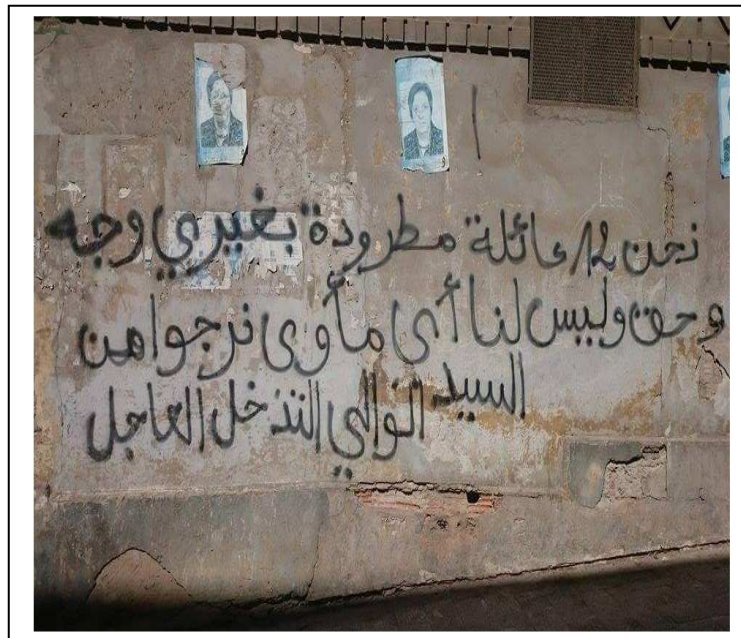 نحن 12 عائلة مطرودة بغيري وجه
وحق وليس لنا أي مأوى نرجوا من
السيد
الوالي التدخل العاجل